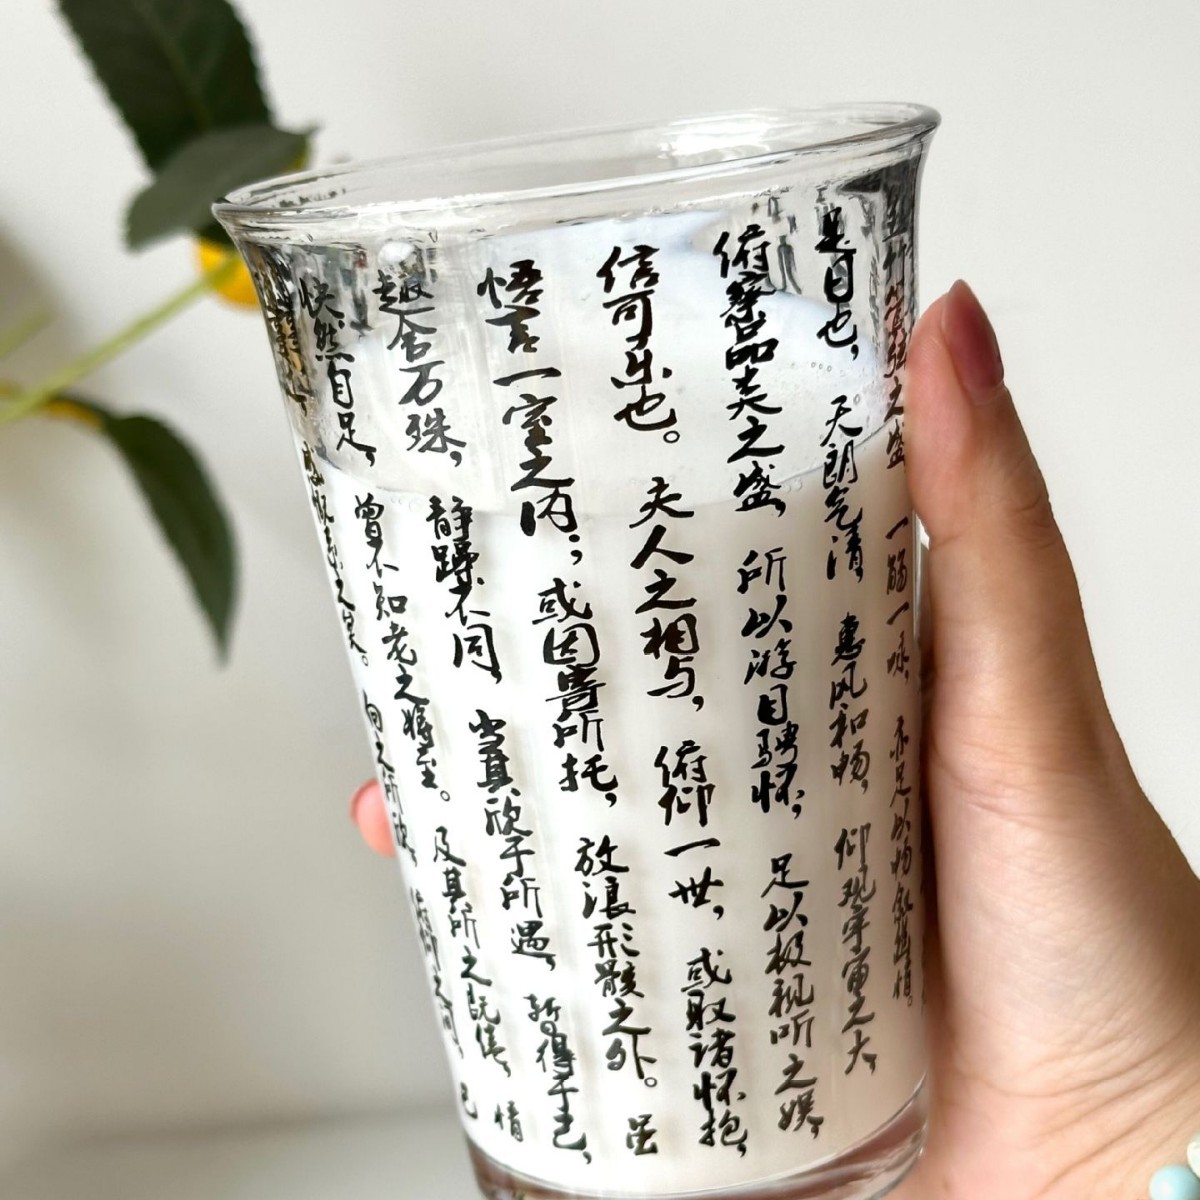 竹管弦之盛，一觞一咏，亦足以畅叙幽情。
是日也，天朗气清，惠风和畅，仰观宇宙之大，
俯察品类之盛，所以游目骋怀，足以极视听之娱，
信可乐也。夫人之相与，俯仰一世，或取诸怀抱，
悟言一室之内；或因寄所托，放浪形骸之外。虽
趣舍万殊，静躁不同，当其欣于所遇，暂得于己，
快然自足，曾不知老之将至。及其所之既倦，情
感慨系之矣。向之所欣，俯仰之间，已